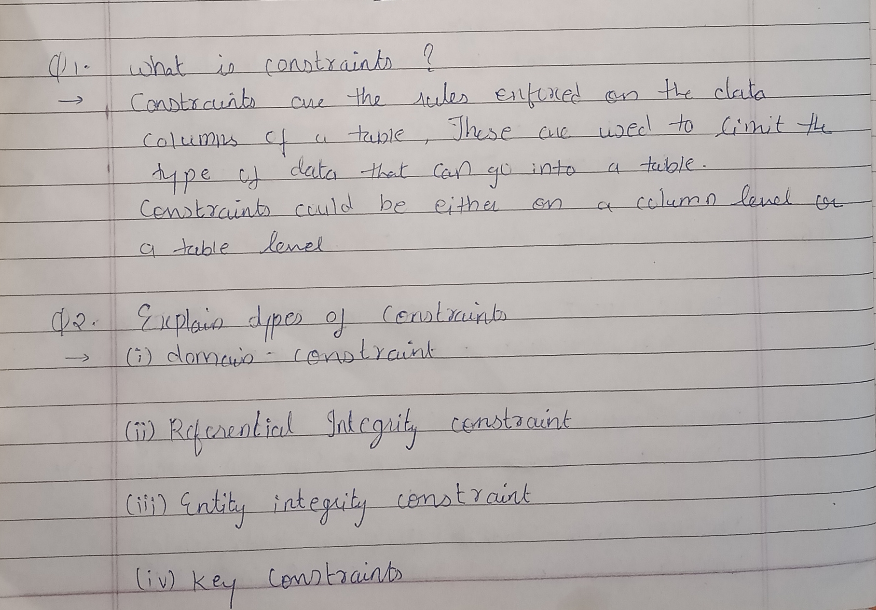 Q1. What is constraints ?
→ Constraints are the rules enforced on the data
columns of a table, These are used to limit the
type of data that can go into a table.
Constraints could be either on a column level or
a table level
Q2. Explain types of constraints
→ (i) domain - constraint
(ii) Referential Integrity constraint
(iii) Entity integrity constraint
(iv) key constraints